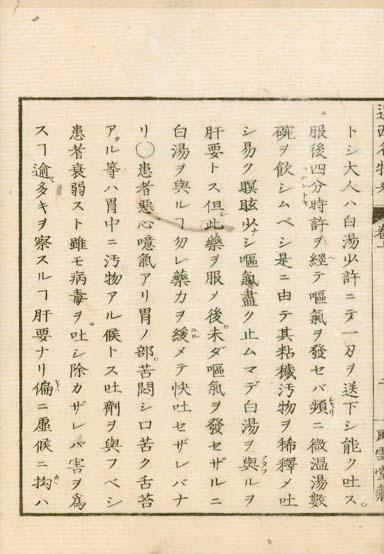 トシ大人ハ白湯少許ニテ一刃ヲ送下シ能ク吐ス
服後四分時許ヲ經テ嘔氣ヲ發セバ頻ニ微温湯數
碗ヲ飲シムベシ是ニ由テ其粘穢汚物ヲ稀釋メ吐
シ易ク瞑眩少ナシ嘔氣盡ク止ムマデ白湯ヲ與ルヲ
肝要トス但此藥ヲ服メ後未ダ嘔氣ヲ發セザルニ
白湯ヲ與ルヿ勿レ藥力ヲ緩メテ快吐セザレバナ
リ〇患者惡心噫氣アリ胃ノ部苦悶シ口苦ク舌苔
アル等ハ胃中ニ汚物アル候トス吐劑ヲ與フベシ
患者衰弱スト雖モ病毒ヲ吐シ除カザレバ害ヲ爲
スヿ逾多キヲ察スルヿ肝要ナリ偏ニ虚候ニ拘ハ